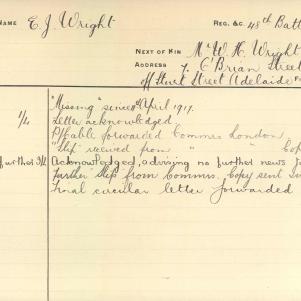 NAME E. J. Wright REG. &C. 48th Batt
NEXT OF KIN Mr W. H. Wright
ADDRESS 7, O'Brian Street
off Sturt Street (Adelaide
"Missing" since April 1917.
1/4 Letter acknowledged.
P/Cable forwarded Commrs London
"Slip" received from " " Cop
further 3/2 Acknowledged, advising no further news to
Further slip from Commrs. Copy sent
Final circular letter forwarded